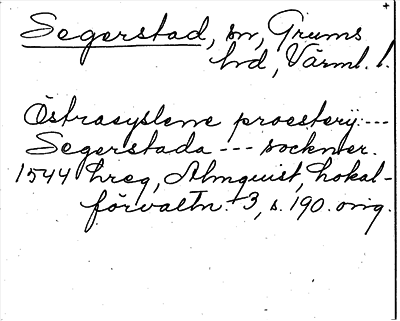 Segerstad, sn, Grums
hd, Värml. l.
Östrasyslene proesterij: ---
Segerstada --- sockner.
1544 hreg, Almquist, Lokal-
förvaltn. 3, s. 190. orig.